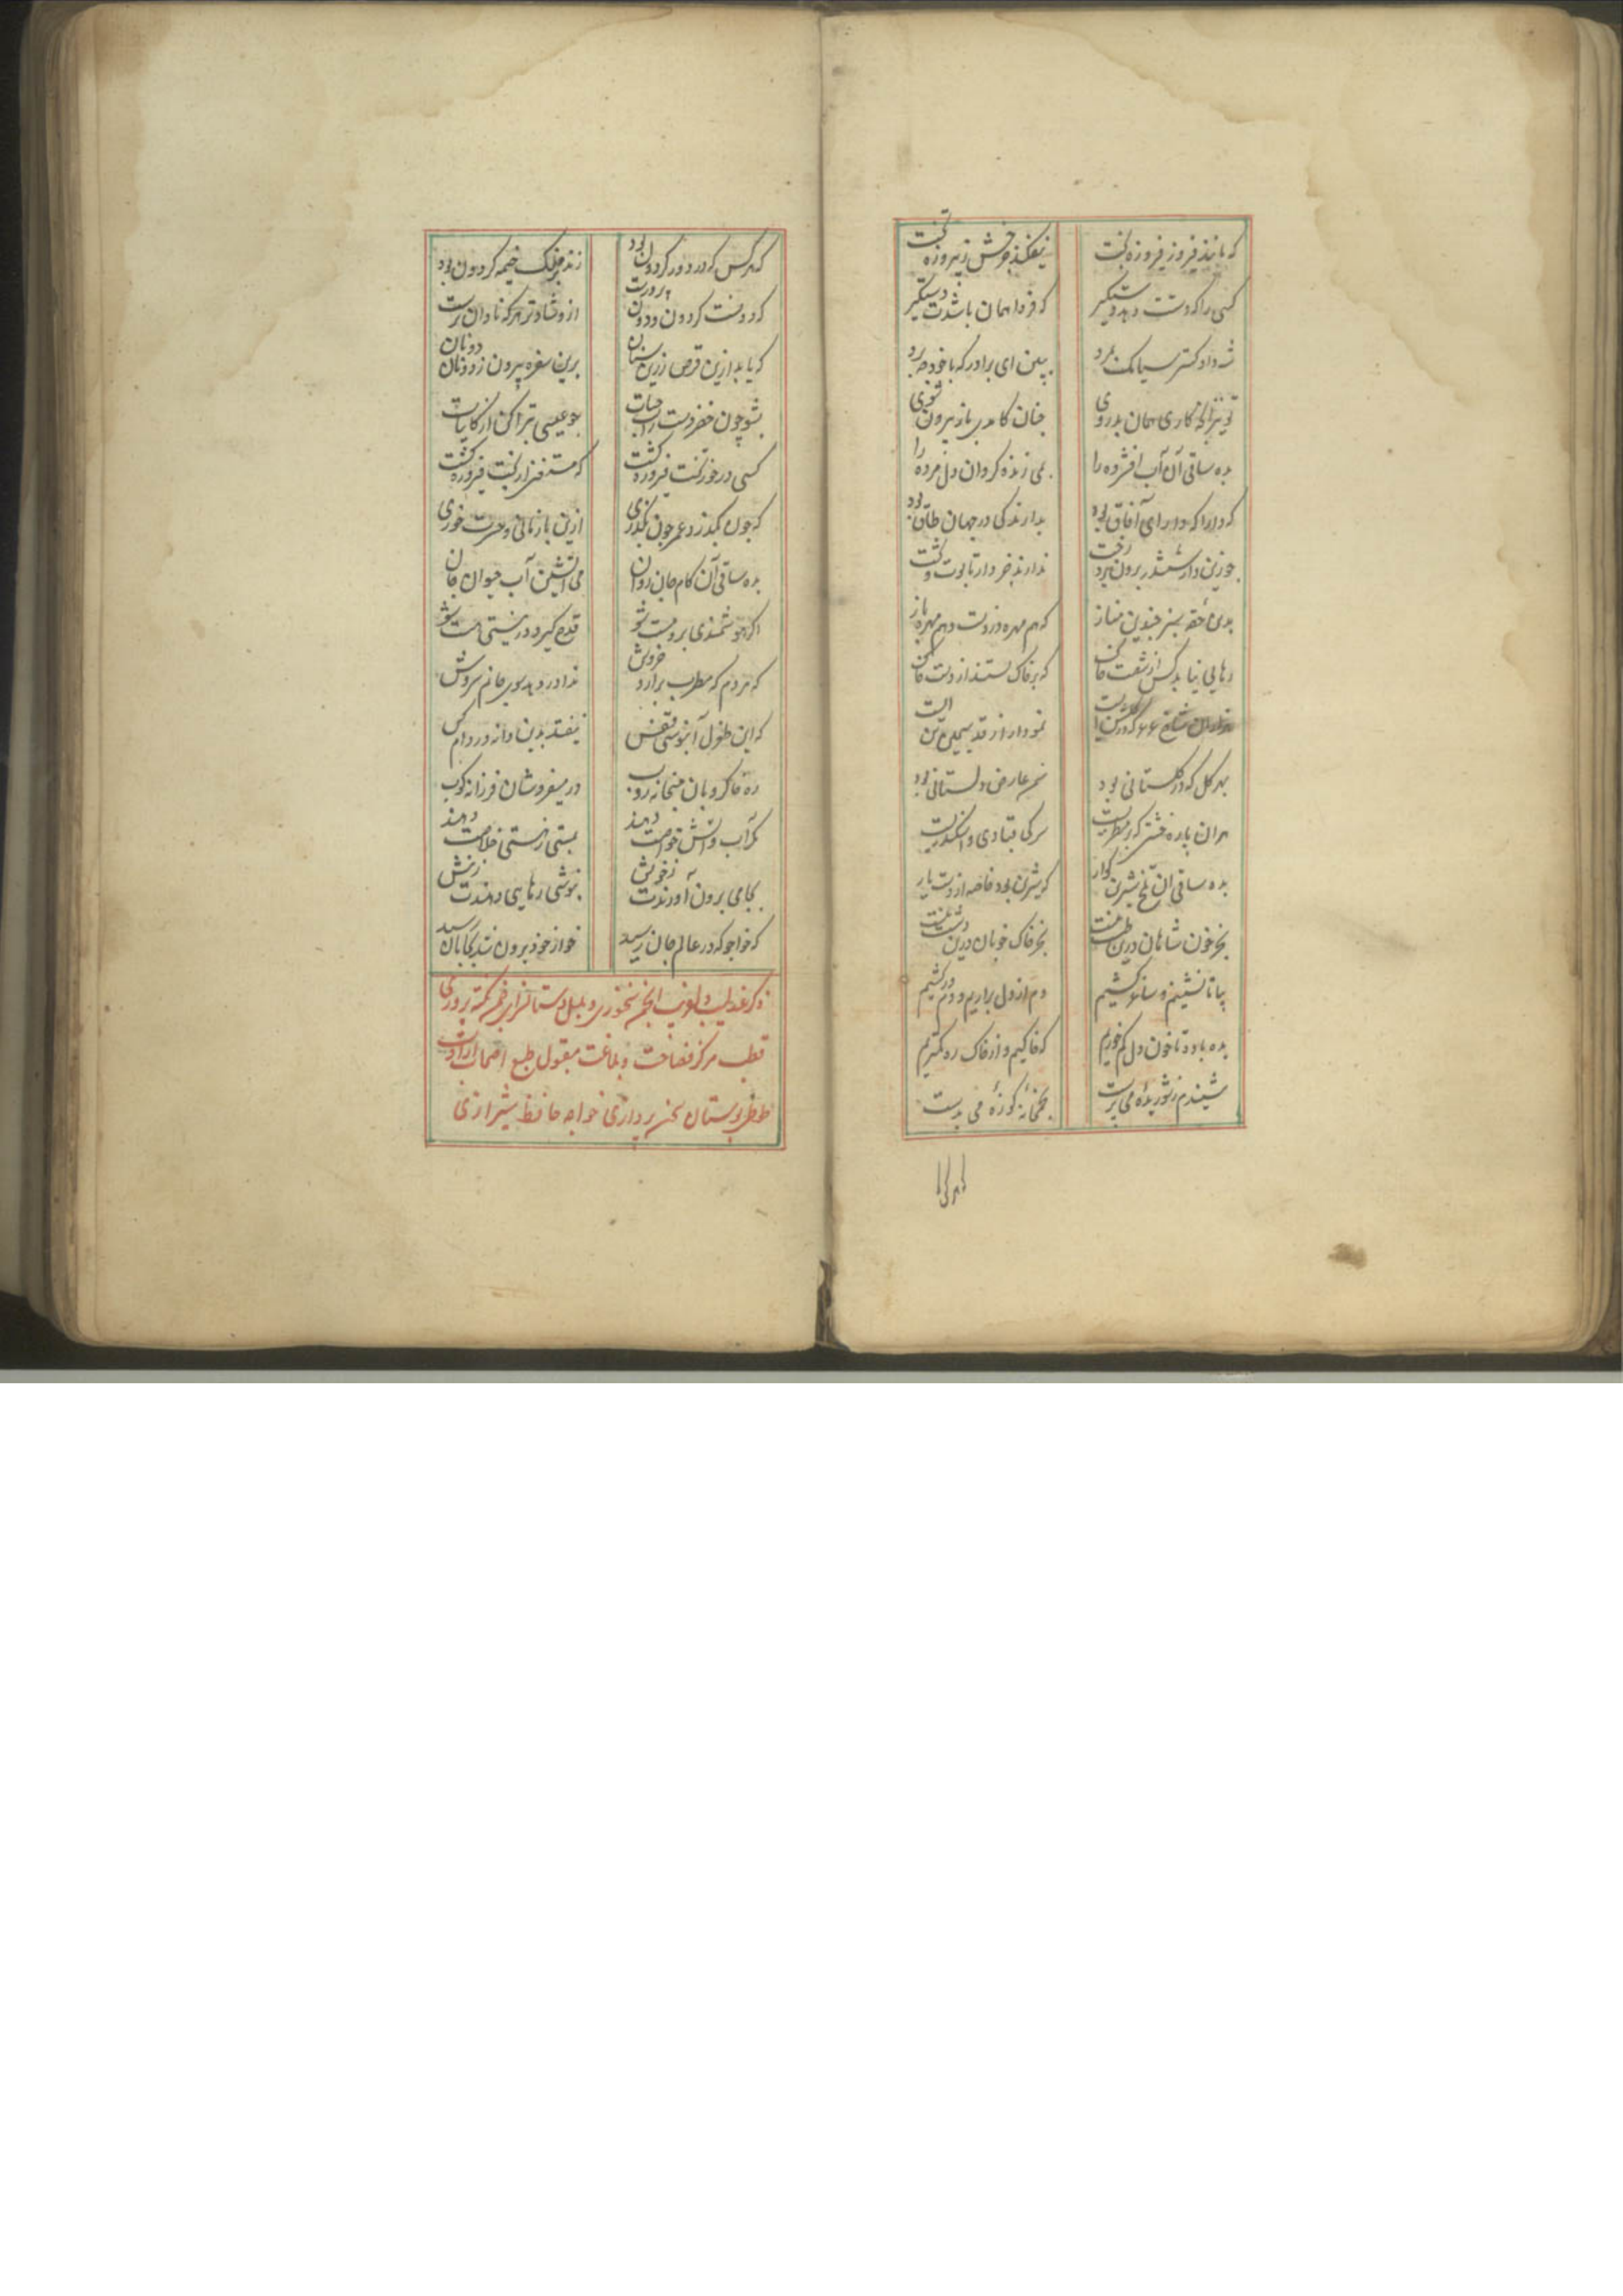 که ماند فیروز فیروزه بخت
نیفکند فرش ز پیروزه تخت
کسی را که دست دهد دستگیر
که فردا همان باشدت دستگیر
شه دادگستر سیامک نمرد
ببین ای برادر که با خود چه برد
تو نیز آنچه کاری همان بدروی
چنان کامدی باز بیرون شوی
بده ساقی آن آب افشرده را
بمی زنده گردان دل مرده را
که دارا که دارای آفاق بود
بدارندگی در جهان طاق بود
چو زین دار ششدر برون برد رخت
ندارند جز دار تابوت و تخت
بدین حقه سبز چندین مناز
که هم مهره دزدست و هم مهره باز
رهایی نیابد کس از شست خاک
که بر خاک
شاخ
نمودار از قد سیمین تن است
بهر گل که در گلستانی بود
نم عارض دلستانی بود
هر آن پاره خشتی که بر منظریست
سر کیقبادی و اسکندریست
بده ساقی آن تلخ شیرین گوار
که شیرین بود خاصه از دست یار
بجز خون شاهان درین طشت نیست
بجز خاک خوبان درین دشت نیست
بیا تا نشینیم و ساغر کشیم
دم از دل براریم و دم درکشیم
بده باده تا خون دل کم خوریم
که خاکیم و از خاک ره کمتریم
شنیدم ز شوریدهٔ می پرست
بخمخانه کوزهٔ می بدست
که هر کس که در دور گردون بود
زند بر فلک خیمه گر دون بود
که دونست گردون و دون پرورست
ازو شادتر هر که نادان ترست
که یابد ازین قرص زرین سنان
برین سفره بیرون ز دونان دونان
بشو چون خضر دست از آب حیات
چو عیسی تبرا کن از کاینات
کسی در خور تخت فیروزه گشت
که مستغنی از تخت فیروزه گشت
که چون بگذرد عمر چون بگذری
ازین بازمانی و حسرت خوری
بده ساقی آن کام جان روان
می آتشین آب حیوان جان
اگر هوشمندی برو مست شو
قدح گیر و در نیستی هست شو
که هر دم که مطرب برارد خروش
ندا در دهد سوی جانم سروش
که این طغرل آبنوسی قفس
نیفتد بدین دانه در دام کس
ره خاکروبان میخانه روب
در میفروشان فرزانه کوب
مگر آب و آتش خواصت دهند
بمستی ز هستی خلاصت دهند
بجامی برون آورندت ز خویش
بنوشی رهایی دهندت ز نیش
که خواجو که در عالم جان رسید
خود برون شد بجانان رسید
ذکر عندلیب انجمن سخنوری و بلبل دستانسرای چمن نکته پروری
قطب مرکز فصاحت و بلاغت مقبول طبع اصحاب ارادت
طوطی بوستان سخن پردازی خواجه حافظ شیرازی
که هر ک